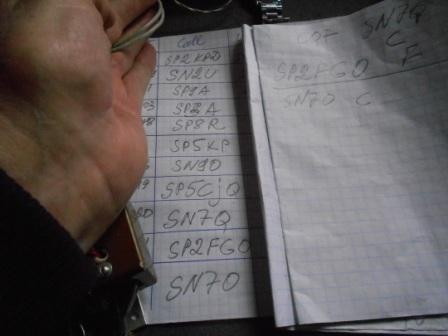 Call
SP2KPD
SN2U
SP1A
SP2A
SP8R
SP5KP
SN9D
SP5CjQ
SN7Q
SP2FGO
SN7O
SN7Q
C
F
SP2FGO
SN7O C